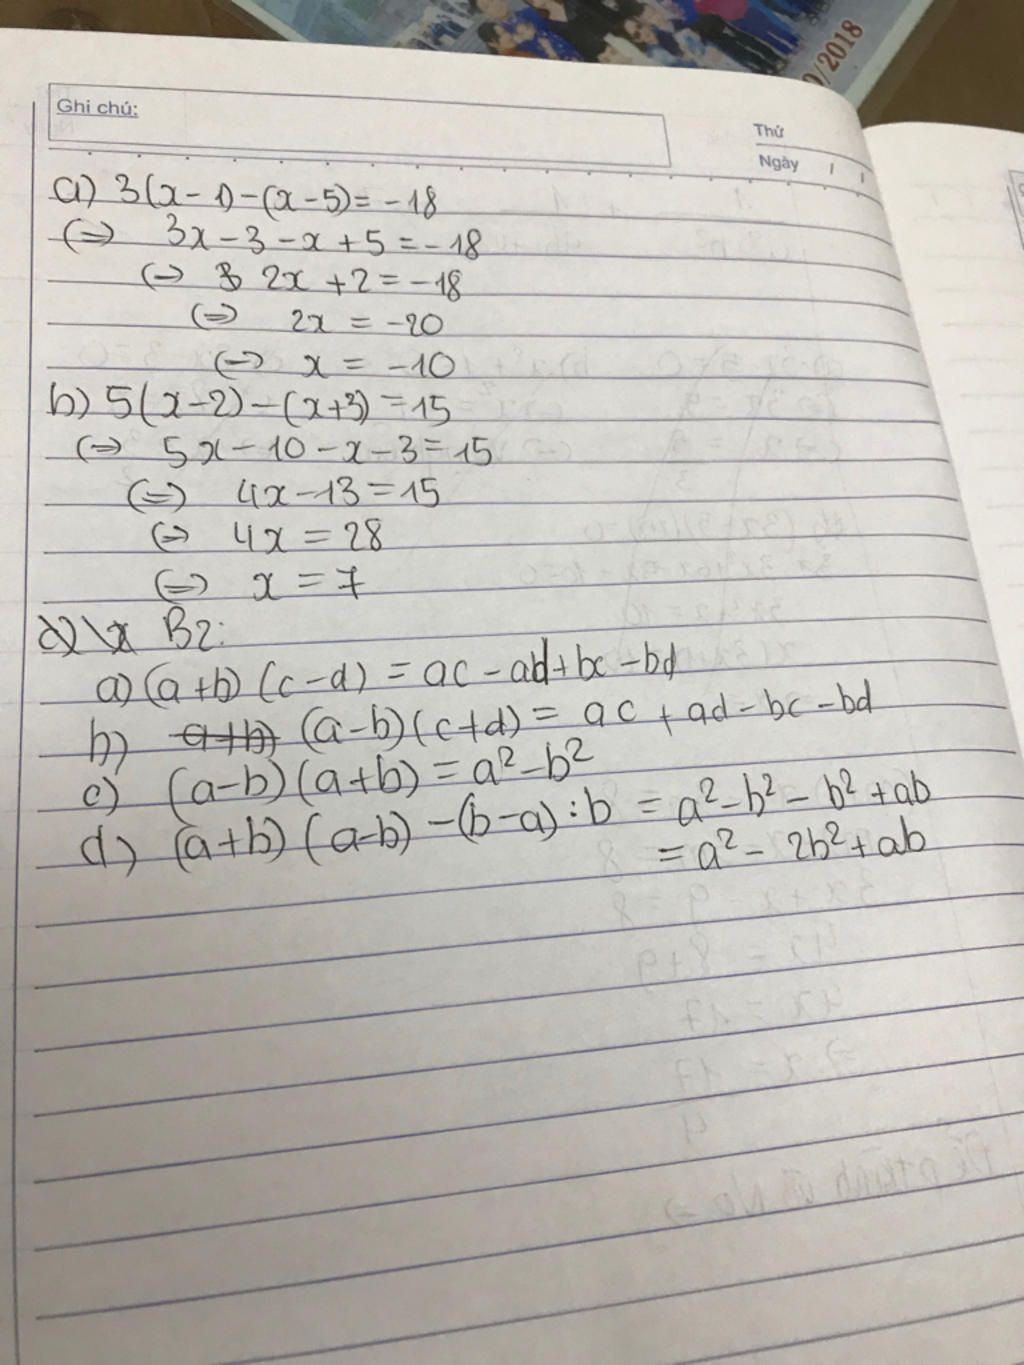 0/2018
Ghi chú:
Thứ
Ngày / /
a) 3(x-1)-(x-5)=-18
(=) 3x-3-x+5=-18
(=) 2x+2=-18
(=) 2x=-20
(=) x=-10
b) 5(x-2)-(x+3)=15
(=) 5x-10-x-3=15
(=) 4x-13=15
(=) 4x=28
(=) x=7
B2:
a) (a+b)(c-d)=ac-ad+bc-bd
b) (a-b)(c+d)=ac+ad-bc-bd
c) (a-b)(a+b)=a²-b²
d) (a+b)(a-b)-(b-a):b=a²-b²-b²+ab
=a²-2b²+ab